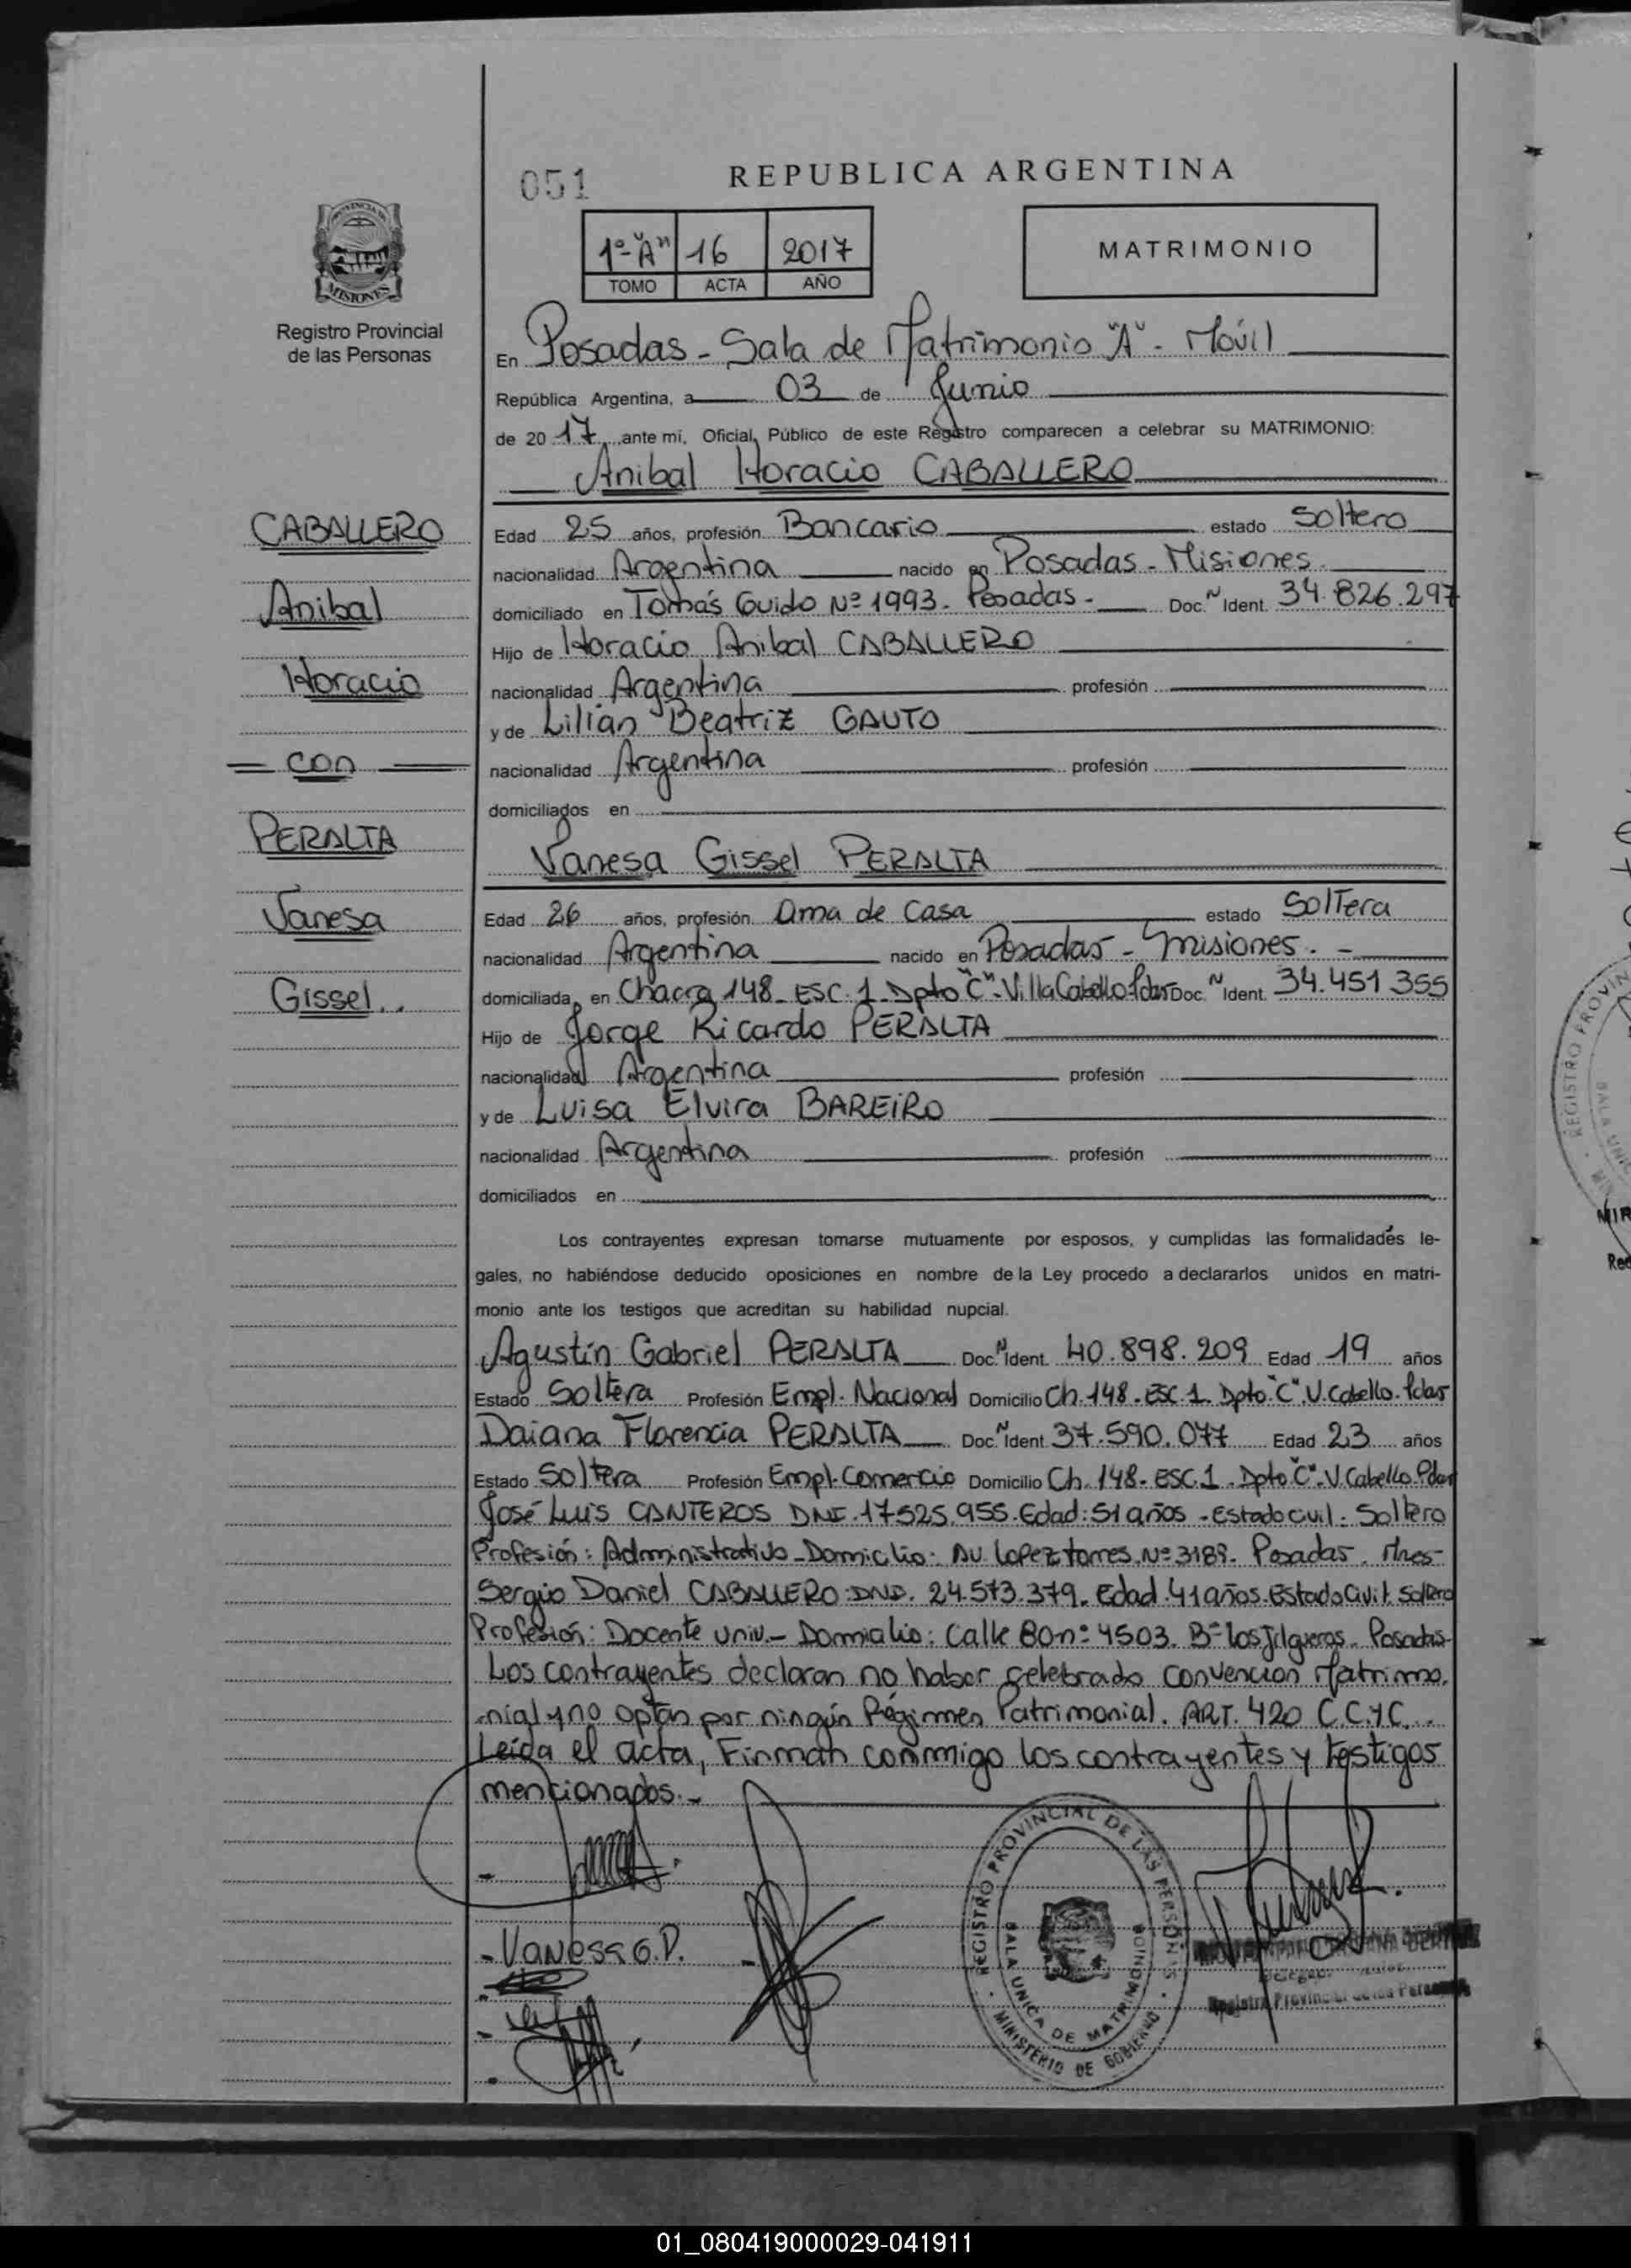 051
REPUBLICA ARGENTINA
PROVINCIA DE
MISIONES
Registro Provincial
de las Personas
1º-"A" 16 2017
TOMO ACTA AÑO
MATRIMONIO
En Posadas - Sala de Matrimonio "A" - Móvil
República Argentina, a 03 de Junio
de 2017 ante mí, Oficial Público de este Registro comparecen a celebrar su MATRIMONIO:
Anibal Horacio CABALLERO
CABALLERO
Anibal
Horacio
con
PERALTA
Vanesa
Gissel..
Edad 25 años, profesión Bancario estado Soltero
nacionalidad Argentina nacido en Posadas - Misiones.
domiciliado en Tomás Guido Nº 1993. Posadas - Doc. N Ident. 34.826.297
Hijo de Horacio Anibal CABALLERO
nacionalidad Argentina profesión
y de Lilian Beatriz GAUTO
nacionalidad Argentina profesión
domiciliados en
Vanesa Gissel PERALTA
Edad 26 años, profesión Ama de Casa estado Soltera
nacionalidad Argentina nacido en Posadas - Misiones. -
domiciliada en Chacra 148 - ESC. 1 - Dpto "C" - Villa Cabello Pdas Doc. N Ident. 34.451.355
Hijo de Jorge Ricardo PERALTA
nacionalidad Argentina profesión
y de Luisa Elvira BAREIRO
nacionalidad Argentina profesión
domiciliados en
Los contrayentes expresan tomarse mutuamente por esposos, y cumplidas las formalidades le-
gales, no habiéndose deducido oposiciones en nombre de la Ley procedo a declararlos unidos en matri-
monio ante los testigos que acreditan su habilidad nupcial.
Agustín Gabriel PERALTA Doc. N Ident. 40.898.209 Edad 19 años
Estado Soltera Profesión Empl. Nacional Domicilio Ch. 148 - ESC. 1. Dpto. "C". V. Cabello. Pdas
Daiana Florencia PERALTA Doc. N Ident. 37.590.077 Edad 23 años
Estado Soltera Profesión Empl. Comercio Domicilio Ch. 148 - ESC. 1 - Dpto "C" - V. Cabello. Pdas
José Luis CANTEROS DNI. 17525.955. Edad: 51 años - Estado Civil: Soltero
Profesión: Administrativo - Domicilio: Av. Lopez torres Nº 3189. Posadas. Mnes-
Sergio Daniel CABALLERO: DNI. 24.573.379. Edad. 41 años. Estado Civil: Soltero
Profesión: Docente Univ. - Domicilio: Calle 80 nº 4503. Bº Los Jilgueros. Posadas-
Los contrayentes declaran no haber celebrado convencion Matrimo.
nial y no optan por ningún Régimen Patrimonial. ART. 420 C.C.YC...
Leída el acta, Firman conmigo los contrayentes y testigos
mencionados. -
- Vanesa G.P.
REGISTRO PROVINCIAL DE LAS PERSONAS
SALA UNICA DE MATRIMONIOS
MINISTERIO DE GOBIERNO
Registro Provincial de las Personas
REGISTRO PROVIN
SALA UNIC
MIR
01_080419000029-041911